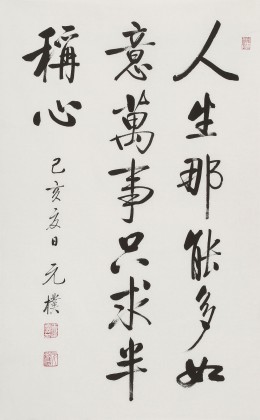 人生那能多如
意萬事只求半
稱心
己亥夏日 元樸